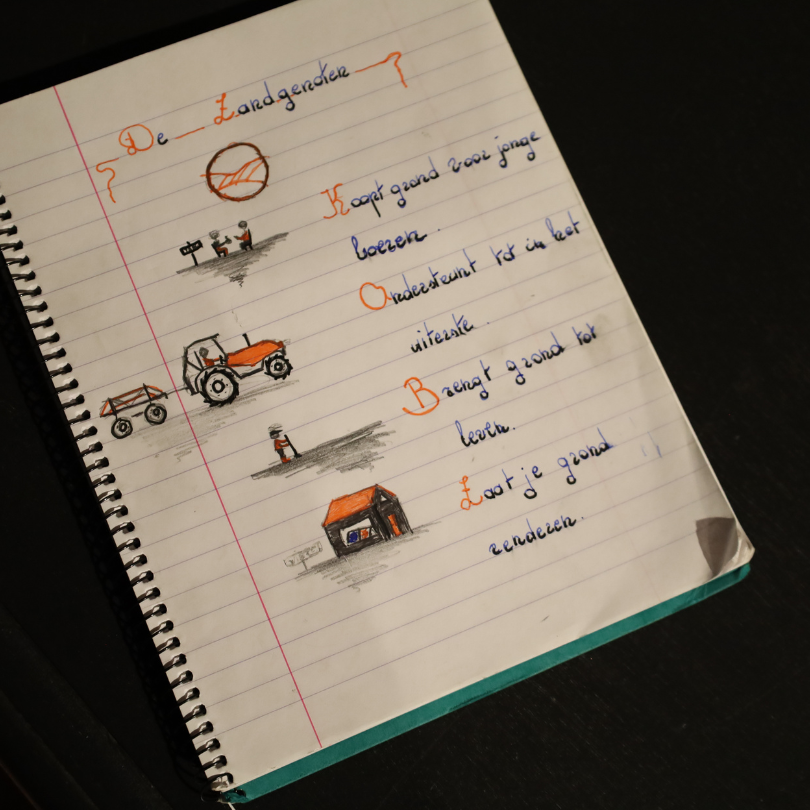 De Landgenoten
Koopt grond voor jonge
boeren.
Ondersteunt tot in het
uiterste.
Brengt grond tot
leven.
Laat je grond
renderen.